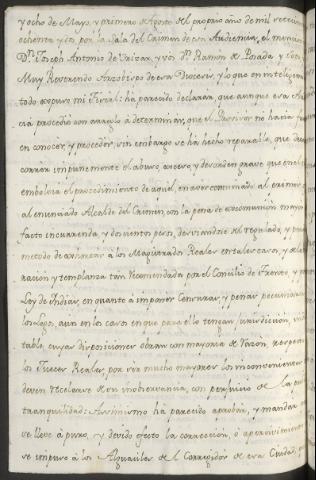 y ocho de Mayo, y primero de Agosto del proprio año de mil setecien
ochenta y dos por la Sala del Crimen de esa Audiencia, el menciona
Dⁿ Joseph Antonio de Urizar, y vos Dⁿ Ramon de Posada, y el
Muy Reverendo Arzobispo de esa Diocesis, y lo que en inteligencia
todo expuso mi Fiscal: ha parecido declarar, que aunque esa Au
cia procedió con arreglo à determinàr, que el Provisor no hacía fuerza
en conocer, y proceder, sin embargo se ha hecho reparable, que de
correr impunemente el abuso, exceso, y desorden grave que
embolvia el procedimiento de aquel, en aver conminado al
al enunciado Alcalde del Crimen, con la pena de excomunion mayor
facto incurrenda, y doscientos pesos, desviandose del regulado, y
metodo de exhortar à los Magistrados Reales en tales casos, y de la
racion y templanza tan recomendada por el Concilio de Trento, y
Ley de Indias, en quanto à imponer Censuras, y penas pecuniarias
los Legos, aun en los casos en que para ello tengan jurisdiccion,
table, cuyas disposiciones obran con mayoria de razon, respecto
los Jueces Reales, por ser mucho mayores los inconvenientes
deven recelarse de su inobservancia, con perjuicio de la
tranquilidad: Assimismo ha parecido aprobar, y mandar
se lleve à puro, y devido efecto la correccion, ò apercivimiento
se impuso à los Alguaciles de el Corregidor de esa Ciudad,